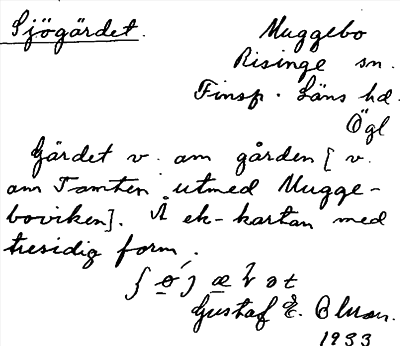 Sjögärdet.
Muggebo
Risinge sn.
Finsp. Läns hd.
Ögl
Gärdet v. om gården [v.
om Tomten utmed Mugge-
boviken]. Å ek-kartan med
tresidig form.
Gustaf E.
1933